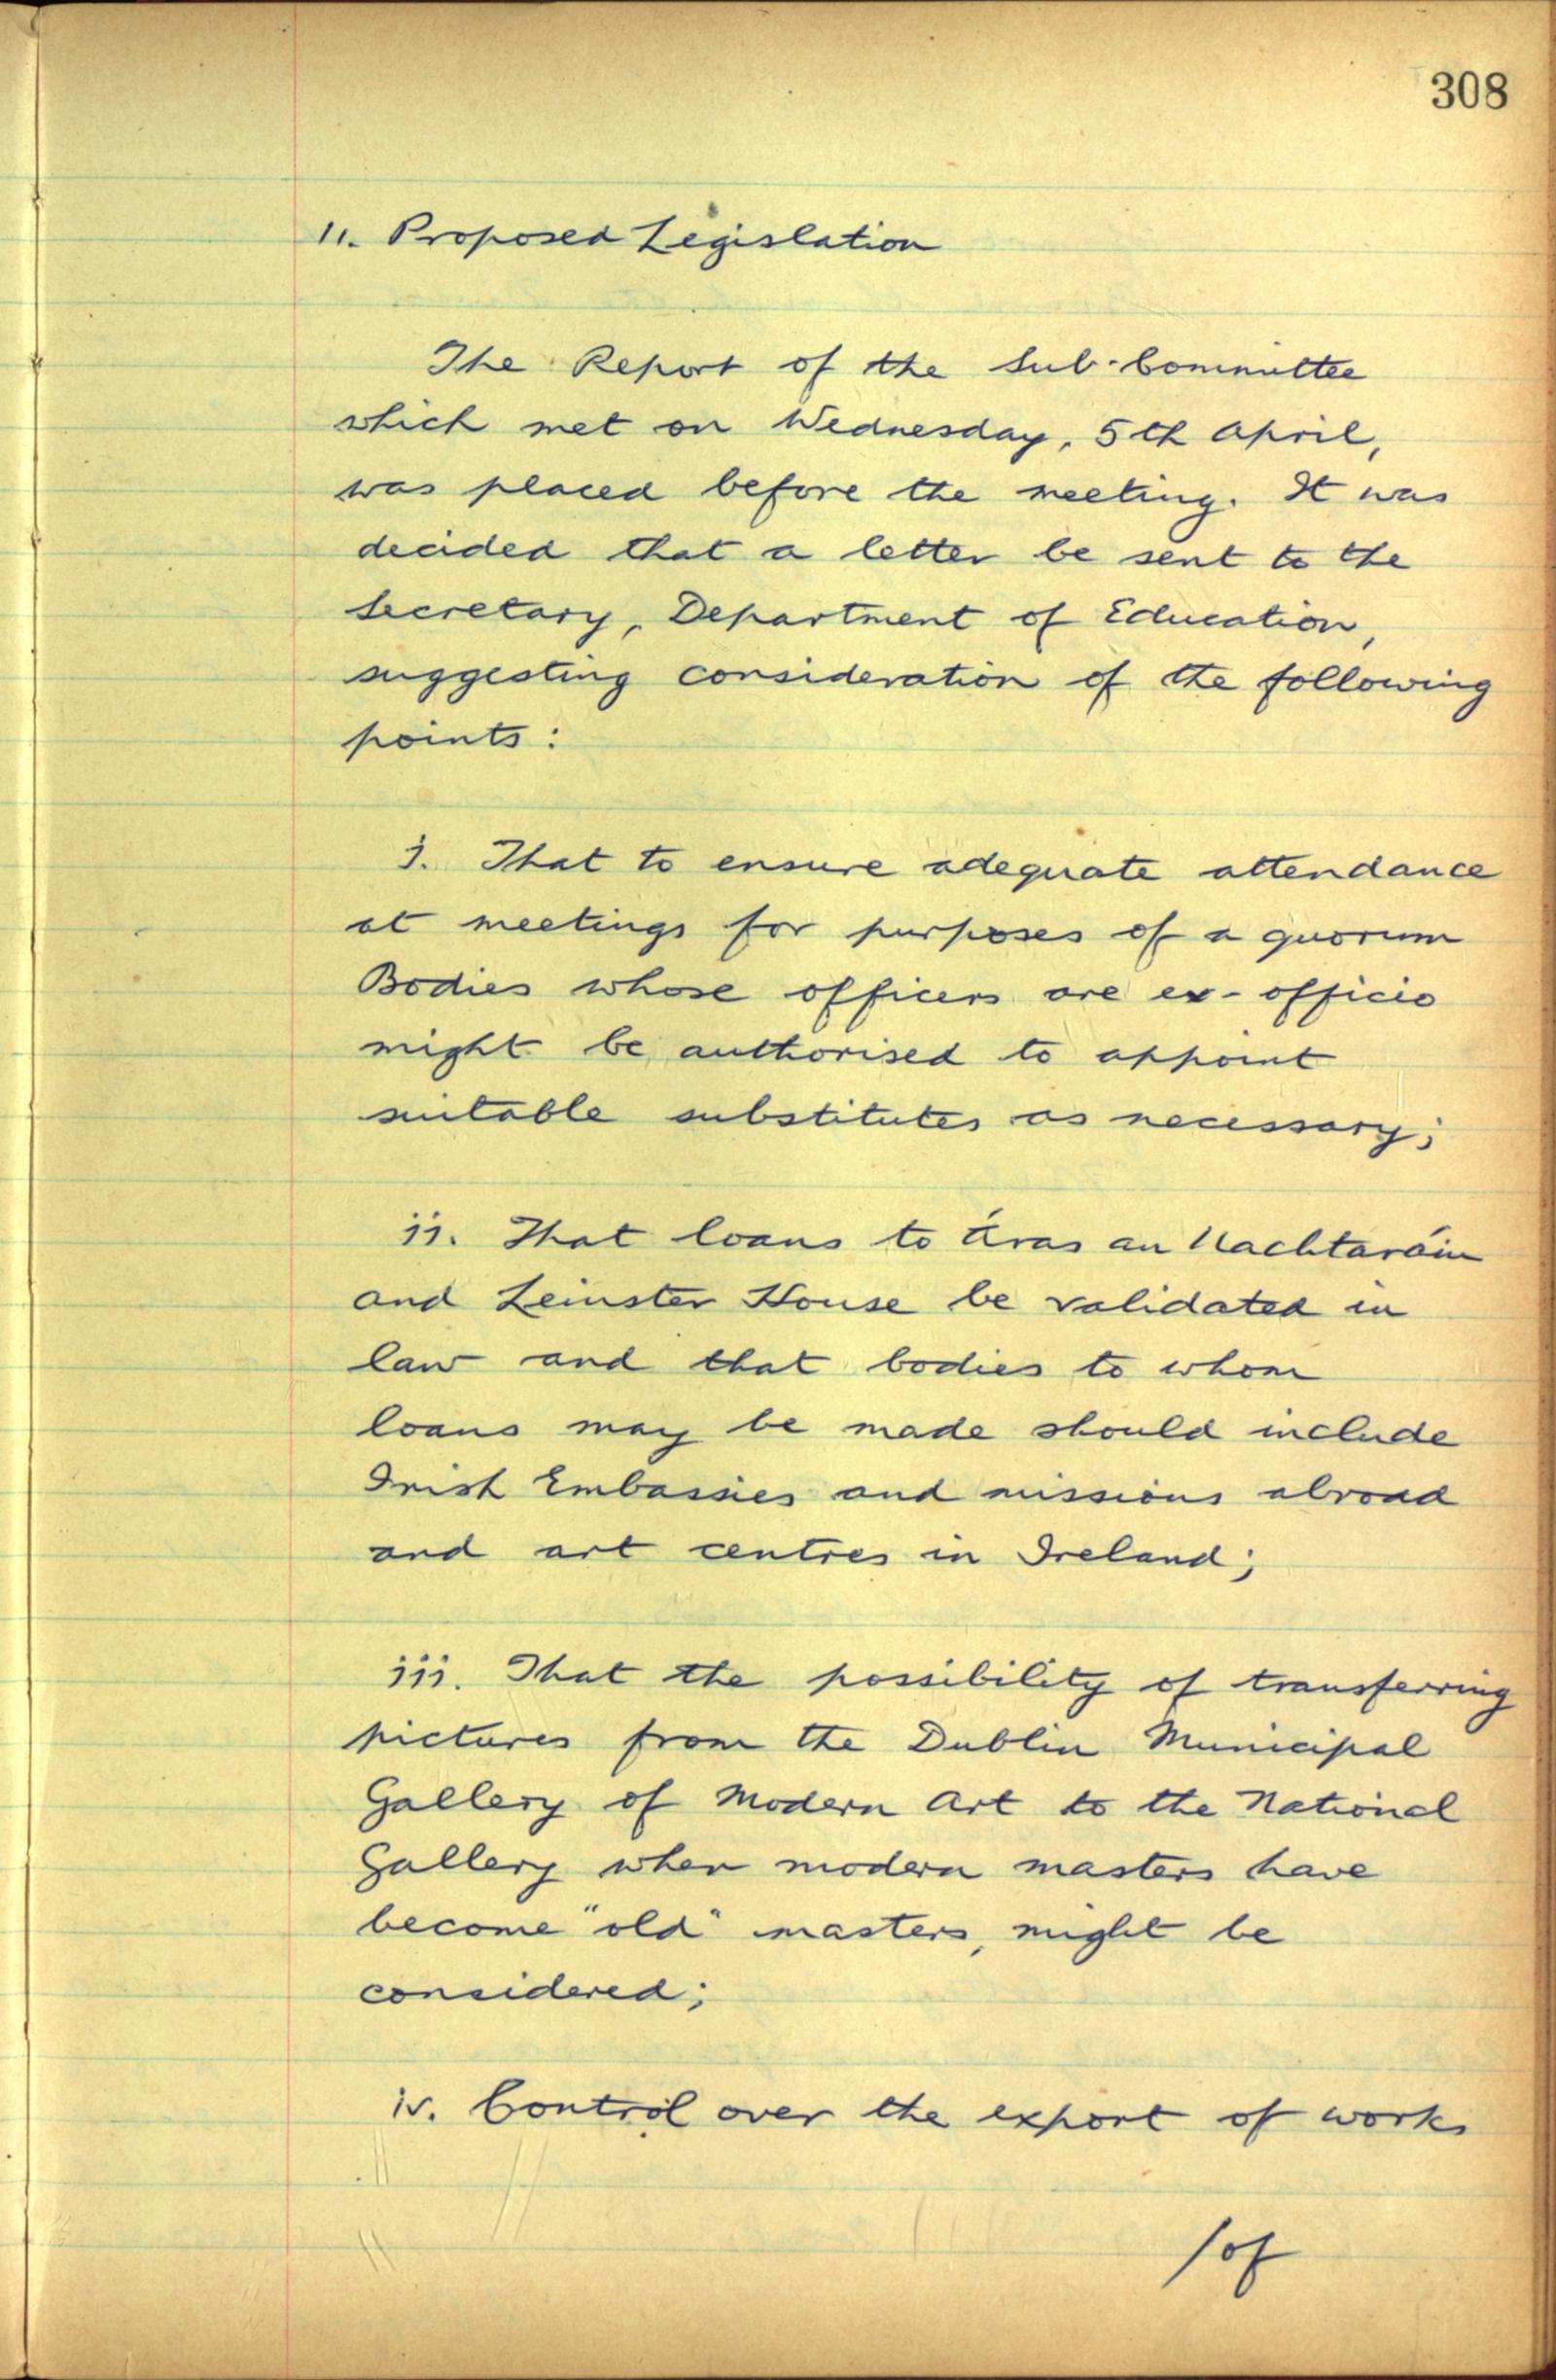 308
11. Proposed Legislation
The Report of the Sub-Committee
which met on Wednesday, 5th April,
was placed before the meeting. It was
decided that a letter be sent to the
Secretary, Department of Education,
suggesting consideration of the following
points:
i. That to ensure adequate attendance
at meetings for purposes of a quorum
Bodies whose officers are ex-officio
might be authorised to appoint
suitable substitutes as necessary;
ii. That loans to Áras an Uachtaráin
and Leinster House be validated in
law and that bodies to whom
loans may be made should include
Irish Embassies and missions abroad
and art centres in Ireland;
iii. That the possibility of transferring
pictures from the Dublin Municipal
Gallery of Modern Art to the National
Gallery when modern masters have
become "old" masters, might be
considered;
iv. Control over the export of works
/of